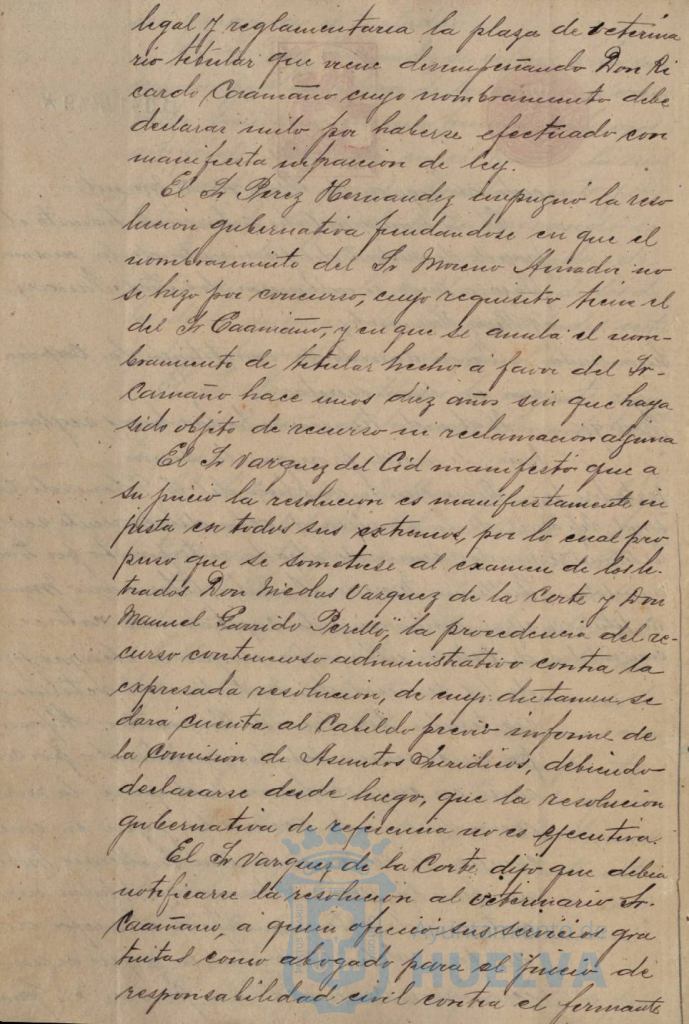 legal y reglamentaria la plaza de veterina
rio titular que viene desempeñando Don Ri
cardo Caamaño cuyo nombramiento debe
declarar nulo por haberse efectuado con
manifiesta infraccion de ley.
El Sr Perez Hernandez impugnó la reso
lucion gubernativa fundandose en que el
nombramiento del Sr Moreno Amador no
se hizo por concurso, cuyo requisito tiene el
del Sr Caamaño, y en que se anula el nom-
bramiento de titular hecho á favor del Sr
Camaño hace unos diez años sin que haya
sido objeto de recurso ni reclamacion alguna
El Sr Vazquez del Cid manifestó que a
su juicio la resolucion es manifiestamente in
justa en todos sus extremos, por lo cual pro
puso que se sometiese al examen de los le-
trados Don Nicolas Vazquez de la Corte y Don
Manuel Garrido Perelló, la procedencia del re-
curso contencioso administrativo contra la
expresada resolucion, de cuyo dictamen se
dará cuenta al Cabildo previo informe de
la Comision de Asuntos Juridicos, debiendo
declararse desde luego, que la resolucion
gubernativa de referencia no es ejecutiva.
El Sr Vazquez de la Corte dijo que debia
notificarse la resolucion al veterinario Sr
Caamaño, a quien ofreció sus servicios gra
tuitos como abogado para el juicio de
responsabilidad civil contra el firmante
HUELVA